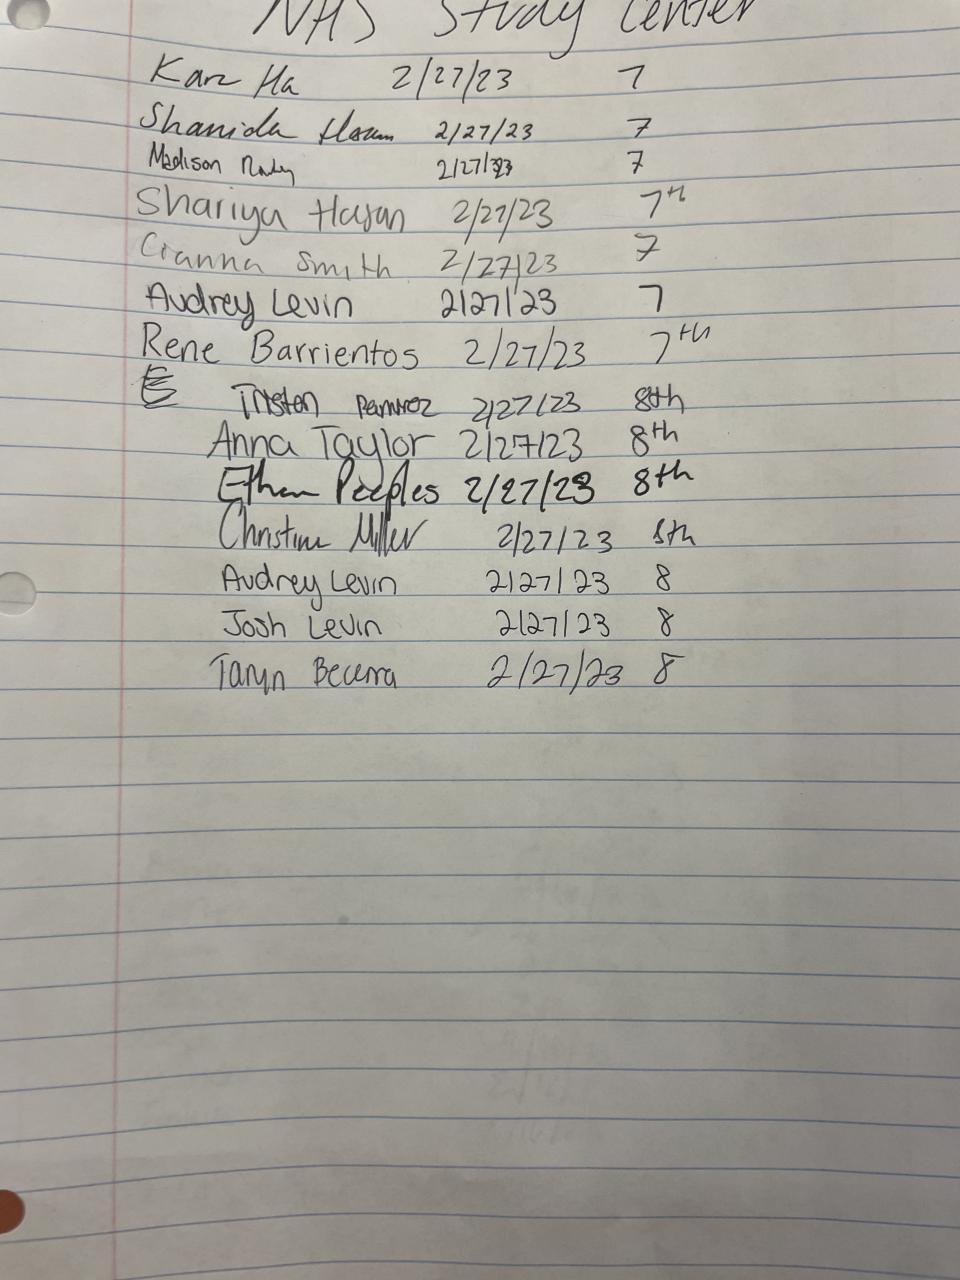 NHS Study Center
Ha 2/27/23 7
Shanida 2/27/23 7
Madison 2/27/23 7
Shariya Hasan 2/27/23 7th
Cianna Smith 2/27/23 7
Audrey Levin 2/27/23 7
Rene Barrientos 2/27/23 7th
Tristen Ramirez 2/27/23 8th
Anna Taylor 2/27/23 8th
Ethan Peeples 2/27/23 8th
Christine Miller 2/27/23 8th
Audrey Levin 2/27/23 8
Josh Levin 2/27/23 8
Taryn Becerra 2/27/23 8